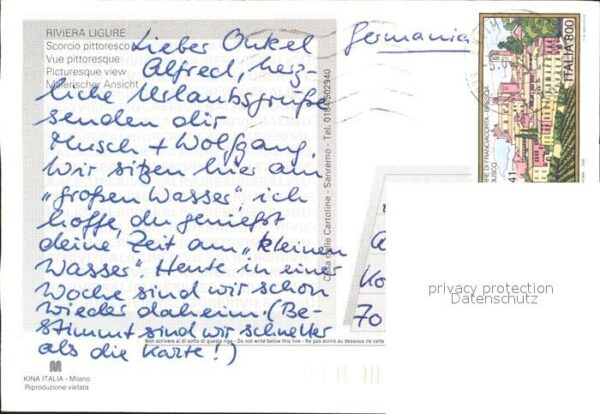 RIVIERA LIGURE
Scorcio pittoresco
Vue pittoresque
Picturesque view
Malerischer Ansicht
Lieber Onkel
Alfred, herz-
liche Urlaubsgrüße
senden dir
Musch + Wolfgang.
Wir sitzen hier am
„großen Wasser", ich
hoffe, du genießt
deine Zeit am „kleinen
Wasser". Heute in einer
Woche sind wir schon
wieder daheim. (Be-
stimmt sind wir schneller
als die Karte!)
Germania
Casa delle Cartoline - Sanremo - Tel. 0184/502940
ITALIA 800
RE DI FRANCIACORTA - BRESCIA
41
Ko
70
privacy protection
Datenschutz
Non scrivere al di sotto di questa riga - Do not write below this line - Ne pas écrire au dessous de cette
KINA ITALIA - Milano
Riproduzione vietata